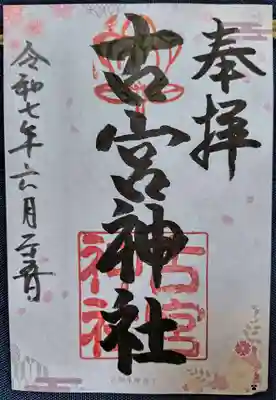 奉拝
古宮神社
古宮
神社
令和七年六月二十二日